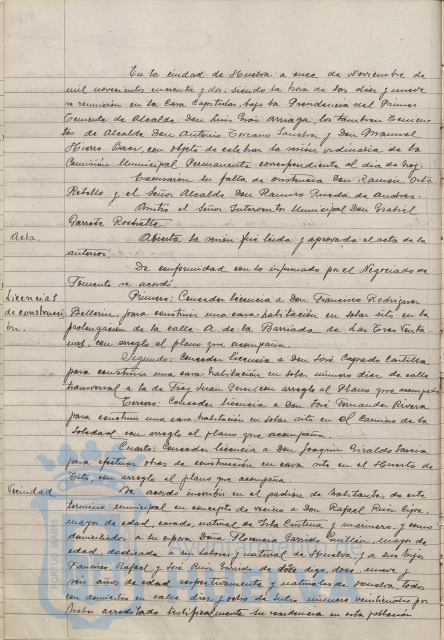 En la ciudad de Huelva a once de Noviembre de
mil novecientos cuarenta y dos, siendo la hora de las diez y nueve
se reunieron en la Casa Capitular, bajo la Presidencia del Primer
Teniente de Alcalde Don Luis Gois Arriaga, los también Tenien-
tes de Alcalde Don Antonio Toscano Sanchez y Don Manuel
Hierro Baez, con objeto de celebrar la sesión ordinaria de la
Comisión Municipal Permanente correspondiente al dia de hoy.
Excusaron su falta de asistencia Don Ramón Orta
Rebollo y el Señor Alcalde Don Ramiro Rueda de Andres.
Asistió el Señor Interventor Municipal Don Gabriel
Garrote
Acta. Abierta la sesión fué leida y aprobada el acta de la
anterior.
De conformidad con lo informado por el Negociado de
Fomento se acordó.
Licencias Primero: Conceder licencia a Don Francisco Rodriguez
de construcci Bellerin para construir una casa-habitación en solar sito en la
ón. prolongación de la calle A. de la Barriada de Las Tres Venta
nas, con arreglo al plano que acompaña.
Segundo: Conceder licencia a Don José Cascado Castilla
para construir una casa habitación en solar número diez de calle
transversal a la de Fray Juan Perez con arreglo al Plano que acompaña
Tercero: Conceder licencia a Don José Fernandez Rivera
para construir una casa habitación en solar sito en el Camino de la
Soledad con arreglo al plano que acompaña.
Cuarto: Conceder licencia a Don Joaquin Giraldo Garcia
para efectuar obras de construcción en casa sita en el Huerto de
con arreglo al plano que acompaña.
Vecindad Se acordó inscribir en el padrón de habitantes de este
termino municipal en concepto de vecino a Don Rafael Ruiz
mayor de edad, casado, natural de Isla Cristina y marinero, y como
domiciliados a su esposa Doña Florencia Garrido mayor de
edad, dedicada a su labores y natural de Huelva, y a sus hijos
Francisco, Rafael y José Ruiz Garrido de doce digo, doce, nueve y
seis años de edad respectivamente y naturales de Huelva, todos
con domicilio en calle diez y ocho de Julio número veintiocho por
haber acreditado testificalmente su residencia en esta población
PORTUS MARIS